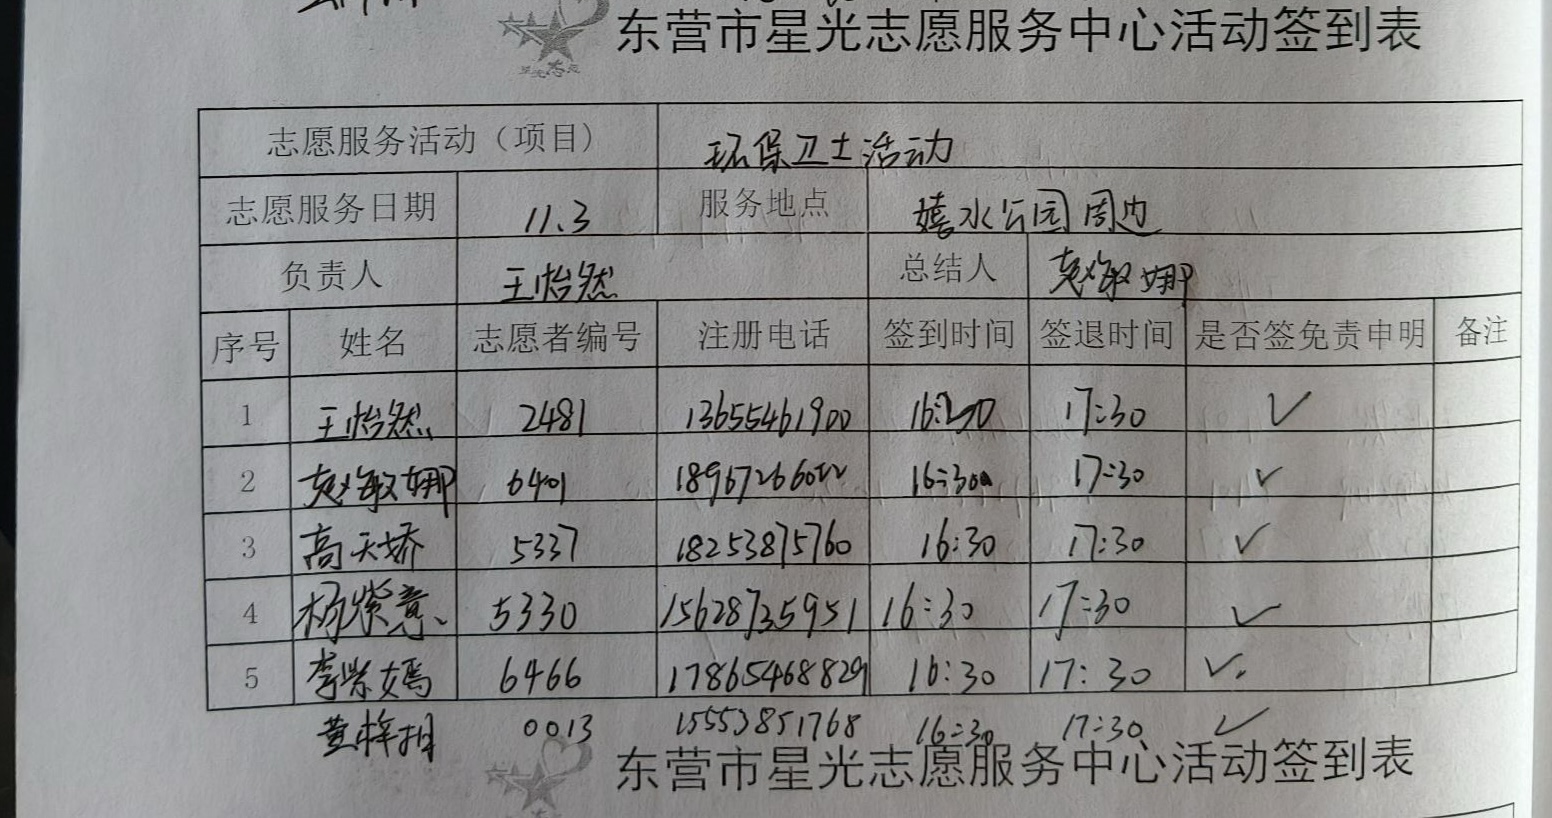 东营市星光志愿服务中心活动签到表
志愿服务活动（项目） 环保卫士活动
志愿服务日期 11.3 服务地点 嬉水公园周边
负责人 王怡然 总结人 赵敏娜
序号 姓名 志愿者编号 注册电话 签到时间 签退时间 是否签免责申明 备注
1 王怡然 2481 13655461900 17:30 ✓
2 赵敏娜 6401 16:30 17:30 ✓
3 高天娇 5337 18253875760 16:30 17:30 ✓
4 杨紫意 5330 15628735951 16:30 17:30 ✓
5 李紫嫣 6466 17865468829 16:30 17:30 ✓
黄梓 0013 15553851768 16:30 17:30 ✓
东营市星光志愿服务中心活动签到表